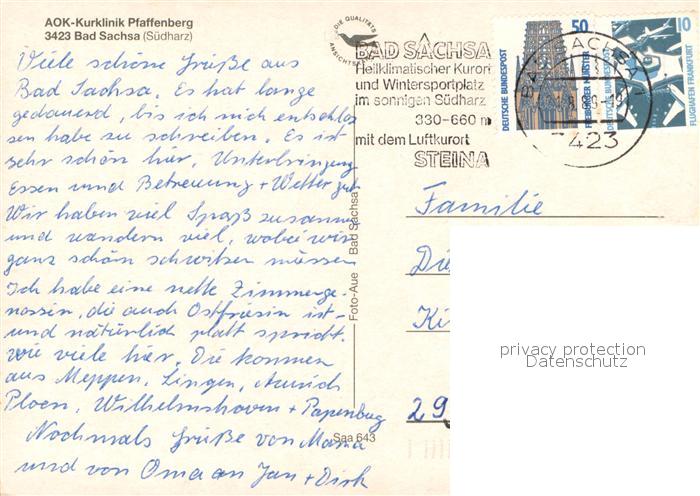 AOK-Kurklinik Pfaffenberg
3423 Bad Sachsa (Südharz)
Viele schöne Grüße aus
Bad Sachsa. Es hat lange
gedauerd, bis ich mich entschlos
sen habe zu schreiben. Es ist
sehr schön hier, Unterbringung
Essen und Betreuung + Wetter gut
Wir haben viel Spaß zusammen
und wandern viel, wobei wir
ganz schön schwitzen müssen
Ich habe eine nette Zimmerge-
nossin, die auch Ostfriesin ist-
und natürlich platt spricht.
wie viele hier. Die kommen
aus Meppen, Lingen, Aurich
Ploen, Wilhelmshaven + Papenburg
Nochmals Grüße von Mama
und von Oma an Jan + Dirk
Foto-Aue Bad Sachsa
Saa 643
DIE QUALITÄTS
ANSICHTS
BAD SACHSA
Heilklimatischer Kurort
und Wintersportplatz
im sonnigen Südharz
330-660 m
mit dem Luftkurort
STEINA
BAD SACHSA 1
3423
50
DEUTSCHE BUNDESPOST
FREIBURGER MÜNSTER
10
DEUTSCHE BUNDESPOST
FLUGHAFEN FRANKFURT
Familie
Ki
29
privacy protection
Datenschutz